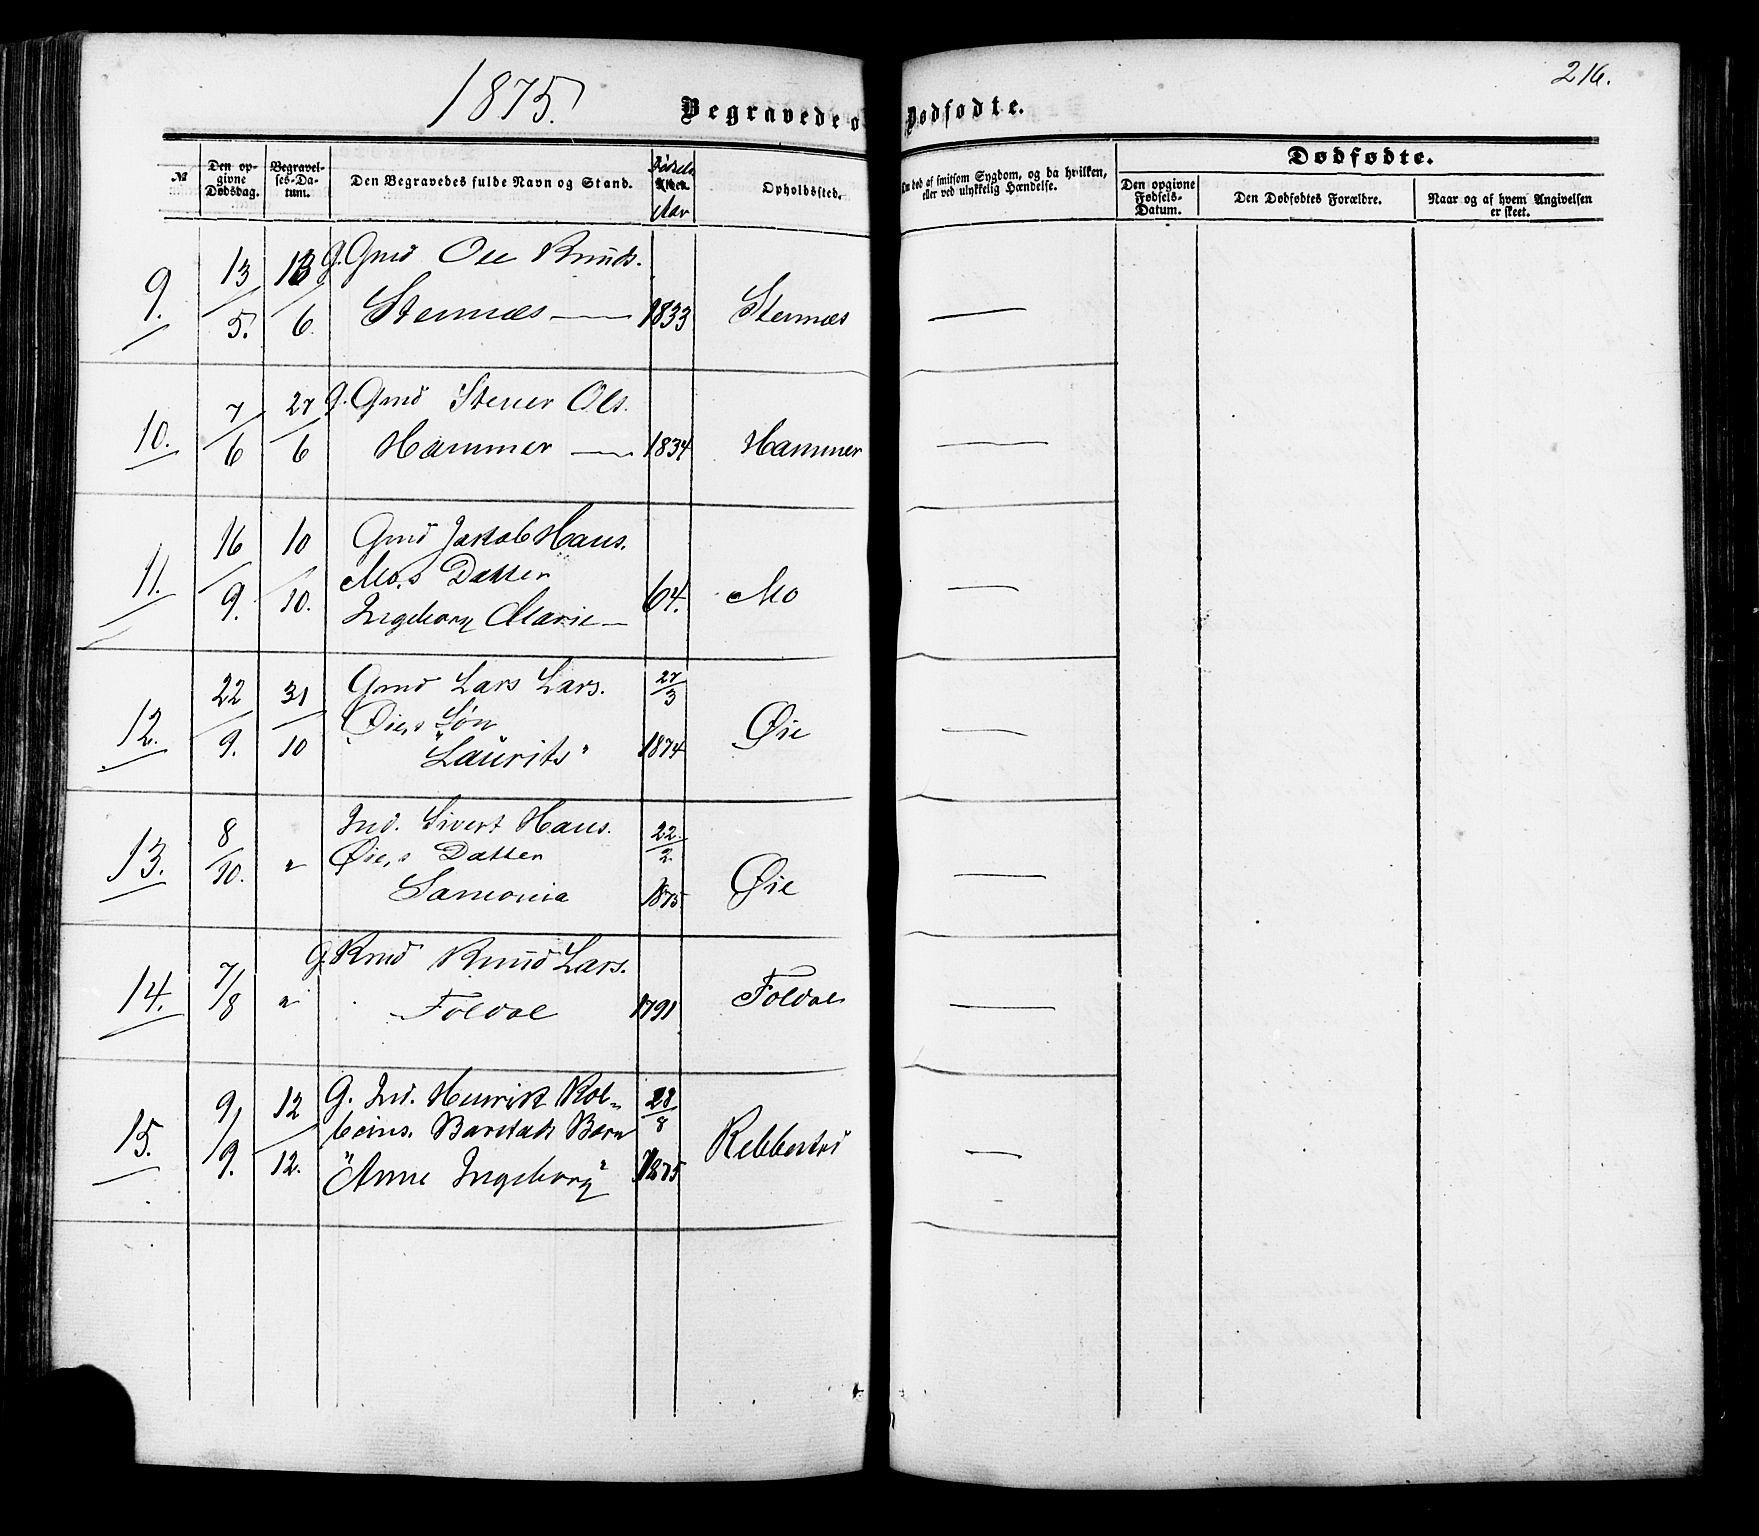 1875.
216.
Begravede o
Dødfødte.
№
Den op-
givne
Dødsdag.
Begravel-
ses-Da-
tum.
Den Begravedes fulde Navn og Stand.
Fødsels
Aar
Opholdssted.
Om død af smitsom Sygdom, og da hvilken,
eller ved ulykkelig Hændelse.
Dødfødte.
Den opgivne
Fødsels-
Datum.
Den Dødfødtes Forældre.
Naar og af hvem Angivelsen
er skeet.
9. 13/5. 13/6. g. Gmd Ole Knuds.
Stennæs — 1833 Stennæs —
10. 7/6 27/6 g. Gmd Stener Ols.
Hammer — 1834 Hammer —
11. 16/9. 10/10. Gmd Jakob Hans.
Mo,s Datter
Ingeborg Marie — 64. Mo —
12. 22/9. 31/10 Gmd Lars Lars. 27/3
Øie,s Søn
"Laurits" 1874 Øie —
13. 8/10. " Ind. Sivert Hans. 22/2.
Øie,s Datter
Samonia 1875. Øie —
14. 7/8 " g. Knud Lars.
Foldal 1791 Foldal —
15. 9/9. 12/12. G. Ind. Henrik Kol-
beins. Barstad Barn 28/8
"Anne Ingeborg" 1875 Rebbestad —